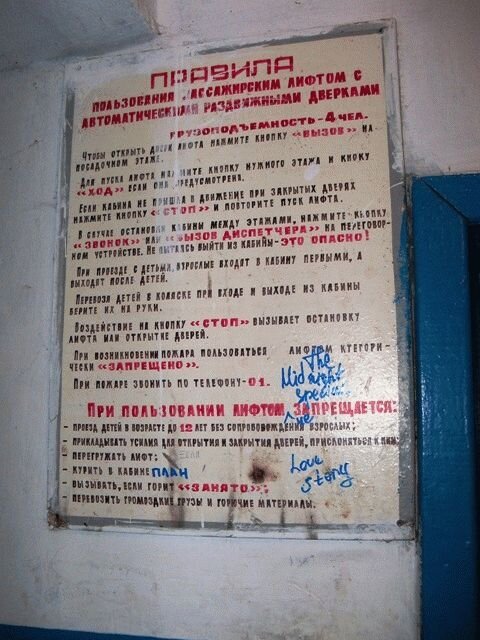 ПРАВИЛА
ПОЛЬЗОВАНИЯ ПАССАЖИРСКИМ ЛИФТОМ С
АВТОМАТИЧЕСКИМИ РАЗДВИЖНЫМИ ДВЕРКАМИ
ГРУЗОПОДЪЕМНОСТЬ-4 ЧЕЛ.
ЧТОБЫ ОТКРЫТЬ ДВЕРИ ЛИФТА НАЖМИТЕ КНОПКУ «ВЫЗОВ» НА
ПОСАДОЧНОМ ЭТАЖЕ.
ДЛЯ ПУСКА ЛИФТА НАЖМИТЕ КНОПКУ НУЖНОГО ЭТАЖА И КНОКУ
«ХОД» ЕСЛИ ОНА ПРЕДУСМОТРЕНА.
ЕСЛИ КАБИНА НЕ ПРИШЛА В ДВИЖЕНИЕ ПРИ ЗАКРЫТЫХ ДВЕРЯХ
НАЖМИТЕ КНОПКУ «СТОП» И ПОВТОРИТЕ ПУСК ЛИФТА.
В СЛУЧАЕ ОСТАНОВКИ КАБИНЫ МЕЖДУ ЭТАЖАМИ, НАЖМИТЕ КНОПКУ
«ЗВОНОК» ИЛИ «ВЫЗОВ ДИСПЕТЧЕРА» НА ПЕРЕГОВОР-
НОМ УСТРОЙСТВЕ. НЕ ПЫТАЯСЬ ВЫЙТИ ИЗ КАБИНЫ-ЭТО ОПАСНО!
ПРИ ПРОЕЗДЕ С ДЕТЬМИ, ВЗРОСЛЫЕ ВХОДЯТ В КАБИНУ ПЕРВЫМИ, А
ВЫХОДЯТ ПОСЛЕ ДЕТЕЙ.
ПЕРЕВОЗЯ ДЕТЕЙ В КОЛЯСКЕ ПРИ ВХОДЕ И ВЫХОДЕ ИЗ КАБИНЫ
БЕРИТЕ ИХ НА РУКИ.
ВОЗДЕЙСТВИЕ НА КНОПКУ «СТОП» ВЫЗЫВАЕТ ОСТАНОВКУ
ЛИФТА ИЛИ ОТКРЫТИЕ ДВЕРЕЙ.
ПРИ ВОЗНИКНОВЕНИИ ПОЖАРА ПОЛЬЗОВАТЬСЯ ЛИФТОМ КТЕГОРИ-
ЧЕСКИ «ЗАПРЕЩЕНО».
ПРИ ПОЖАРЕ ЗВОНИТЬ ПО ТЕЛЕФОНУ-01.
The
Midnight
special
Live
ПРИ ПОЛЬЗОВАНИИ ЛИФТОМ ЗАПРЕЩАЕТСЯ:
- ПРОЕЗД ДЕТЕЙ В ВОЗРАСТЕ ДО 12 ЛЕТ БЕЗ СОПРОВОЖДЕНИЯ ВЗРОСЛЫХ;
- ПРИКЛАДЫВАТЬ УСИЛИЯ ДЛЯ ОТКРЫТИЯ И ЗАКРЫТИЯ ДВЕРЕЙ, ПРИСЛОНЯТЬСЯ К НИМ;
- ПЕРЕГРУЖАТЬ ЛИФТ;
- КУРИТЬ В КАБИНЕ ПЛАН
- ВЫЗЫВАТЬ, ЕСЛИ ГОРИТ «ЗАНЯТО»;
- ПЕРЕВОЗИТЬ ГРОМОЗДКИЕ ГРУЗЫ И ГОРЮЧИЕ МАТЕРИАЛЫ.
Love
story